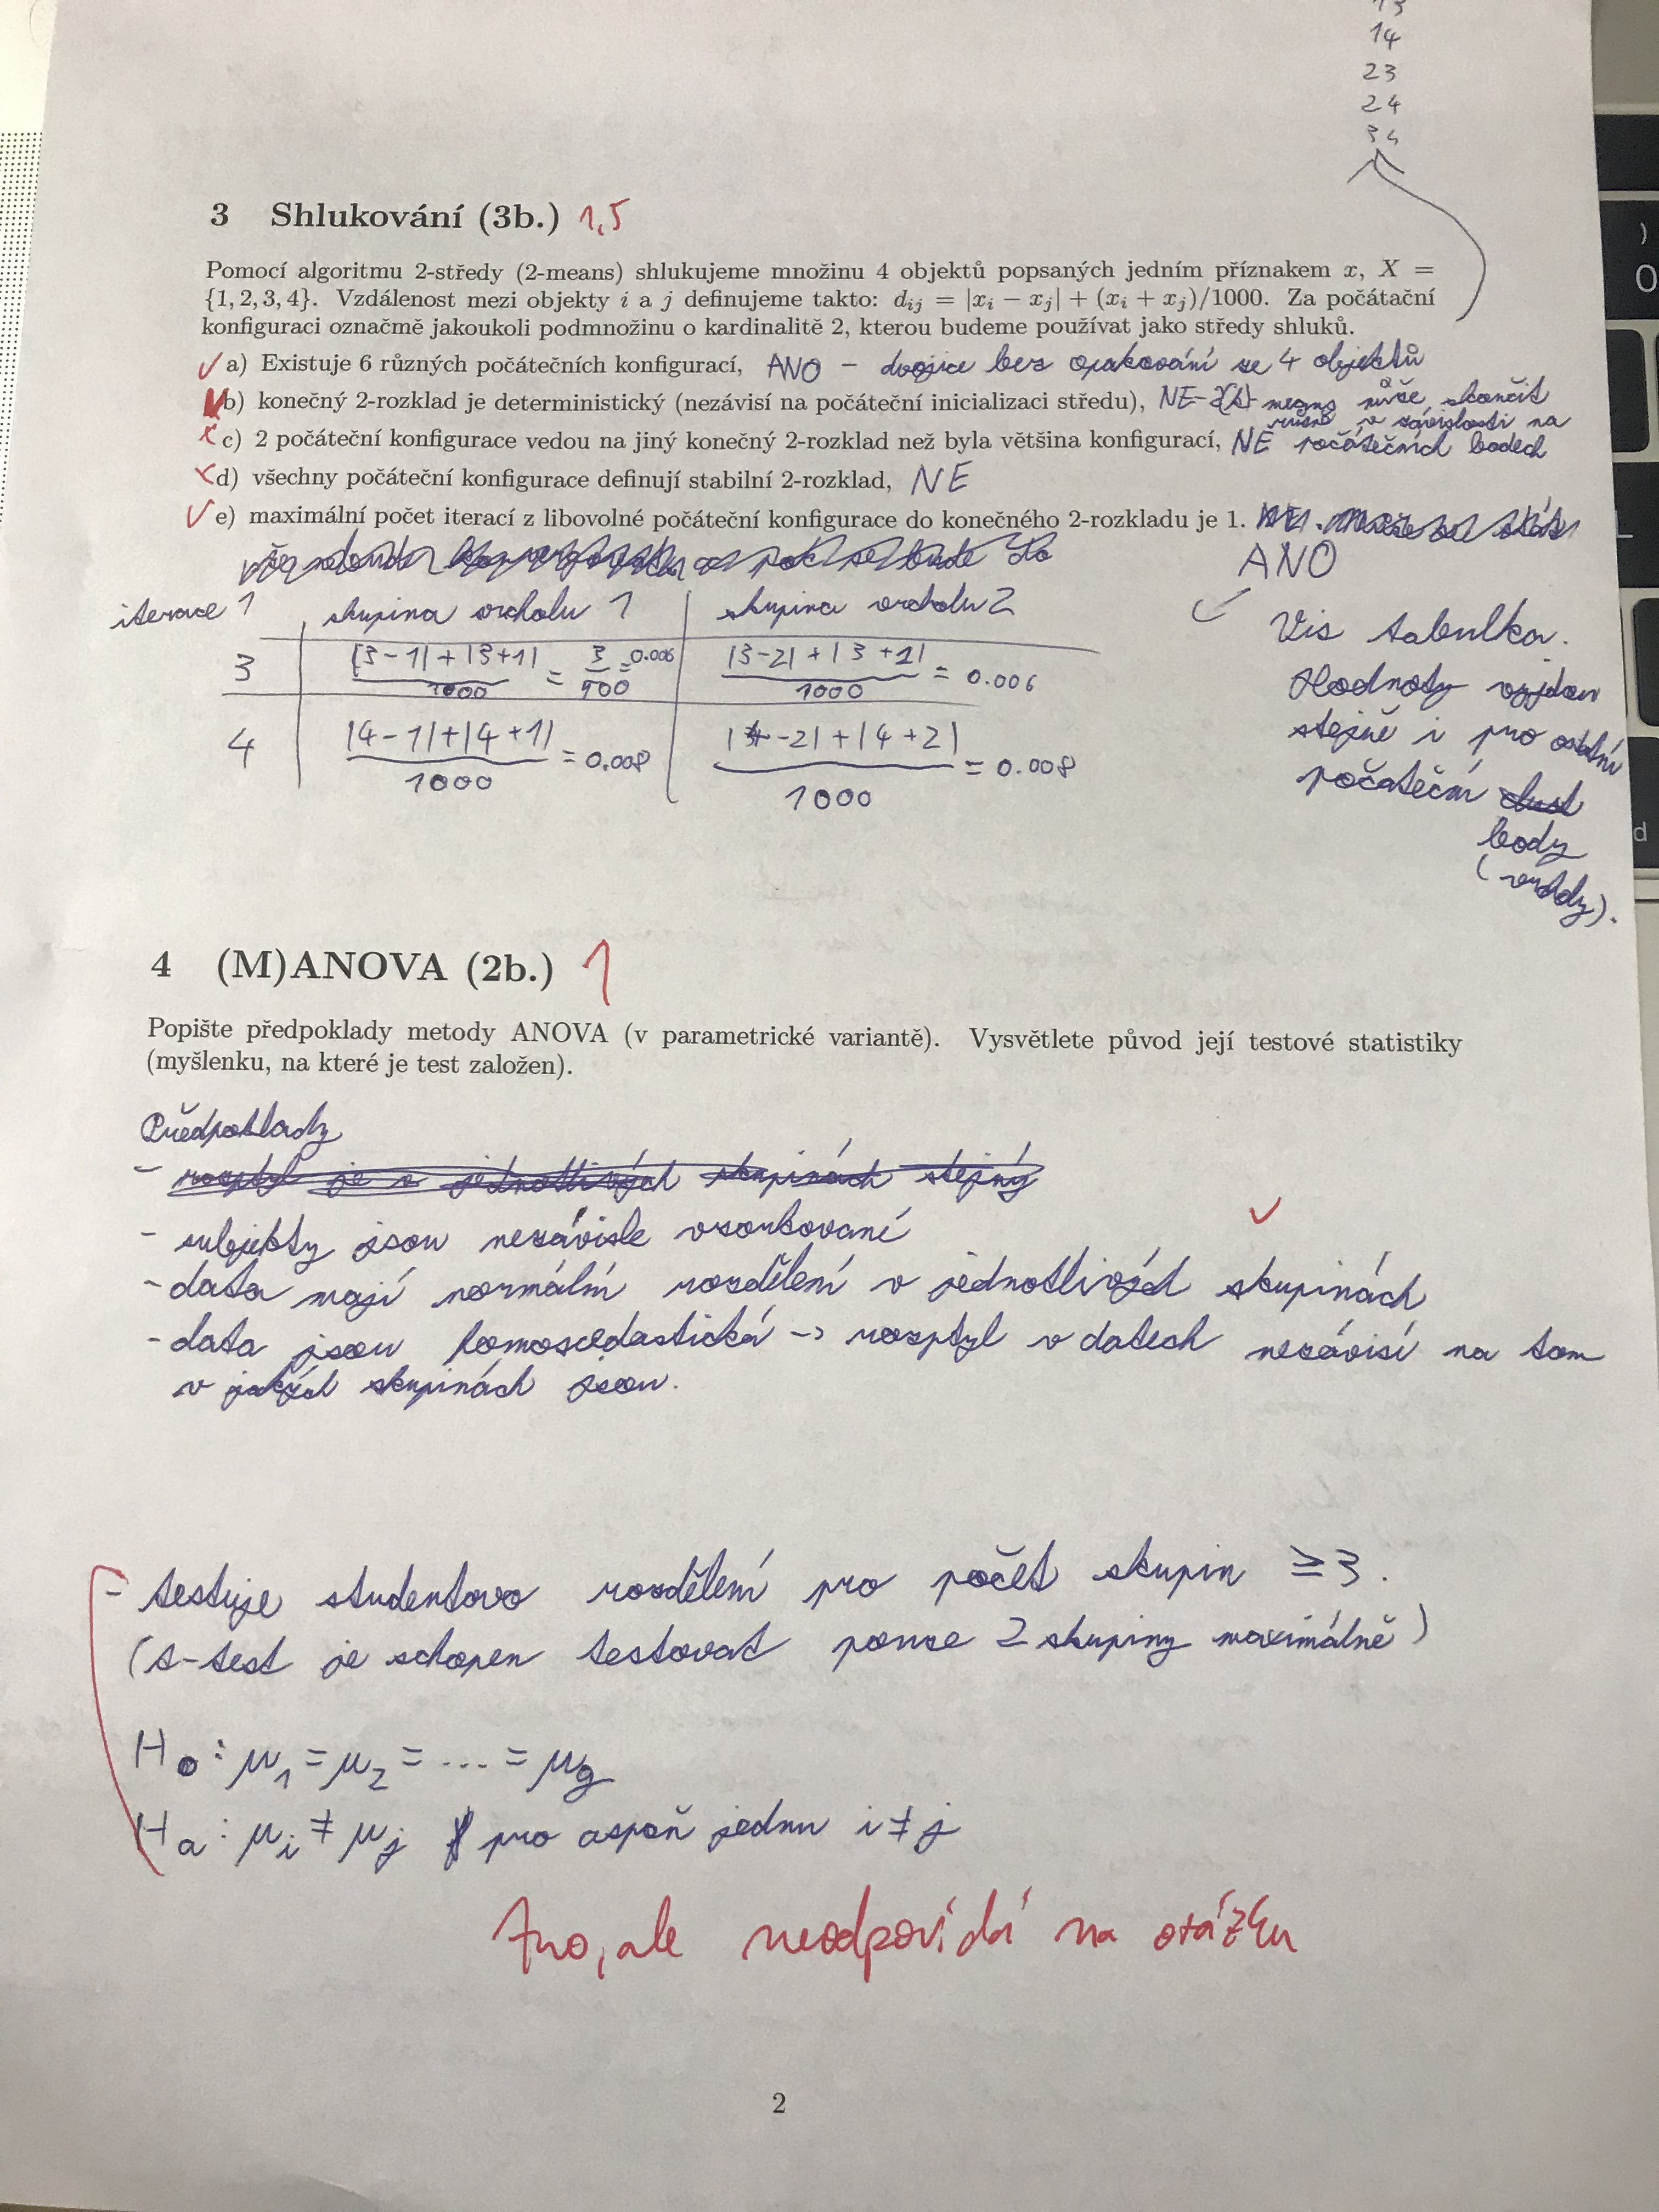 13
14
23
24
34
3 Shlukování (3b.) 1,5
Pomocí algoritmu 2-středy (2-means) shlukujeme množinu 4 objektů popsaných jedním příznakem x, X =
{1, 2, 3, 4}. Vzdálenost mezi objekty i a j definujeme takto: d_ij = |x_i − x_j| + (x_i + x_j)/1000. Za počátační
konfiguraci označmě jakoukoli podmnožinu o kardinalitě 2, kterou budeme používat jako středy shluků.
✓ a) Existuje 6 různých počátečních konfigurací, ANO – dvojice bez opakování ze 4 objektů
b) konečný 2-rozklad je deterministický (nezávisí na počáteční inicializaci středu), NE - means může skončit
v závislosti na
x c) 2 počáteční konfigurace vedou na jiný konečný 2-rozklad než byla většina konfigurací, NE počátečních bodech
x d) všechny počáteční konfigurace definují stabilní 2-rozklad, NE
✓ e) maximální počet iterací z libovolné počáteční konfigurace do konečného 2-rozkladu je 1.
ANO
iterace 1 skupina vrcholu 1 skupina vrcholu 2
Viz tabulka.
3 |3-1|+|3+1| / 1000 = 3/500 = 0.006 |3-2|+|3+2| / 1000 = 0.006
Hodnoty vyjdou
stejně i pro ostatní
4 |4-1|+|4+1| / 1000 = 0.008 |4-2|+|4+2| / 1000 = 0.008
počáteční
body
(vrcholy).
4 (M)ANOVA (2b.) 1
Popište předpoklady metody ANOVA (v parametrické variantě). Vysvětlete původ její testové statistiky
(myšlenku, na které je test založen).
Předpoklady
- rozptyl je v jednotlivých skupinách stejný
- subjekty jsou nezávisle vzorkované ✓
- data mají normální rozdělení v jednotlivých skupinách
- data jsou homoscedastická -> rozptyl v datech nezávisí na tom
v jakých skupinách jsou.
- testuje studentovo rozdělení pro počet skupin ≥ 3.
(t-test je schopen testovat pouze 2 skupiny maximálně)
H0: μ1 = μ2 = ... = μg
Ha: μi ≠ μj pro aspoň jednu i ≠ j
Ano, ale neodpovídá na otázku
2